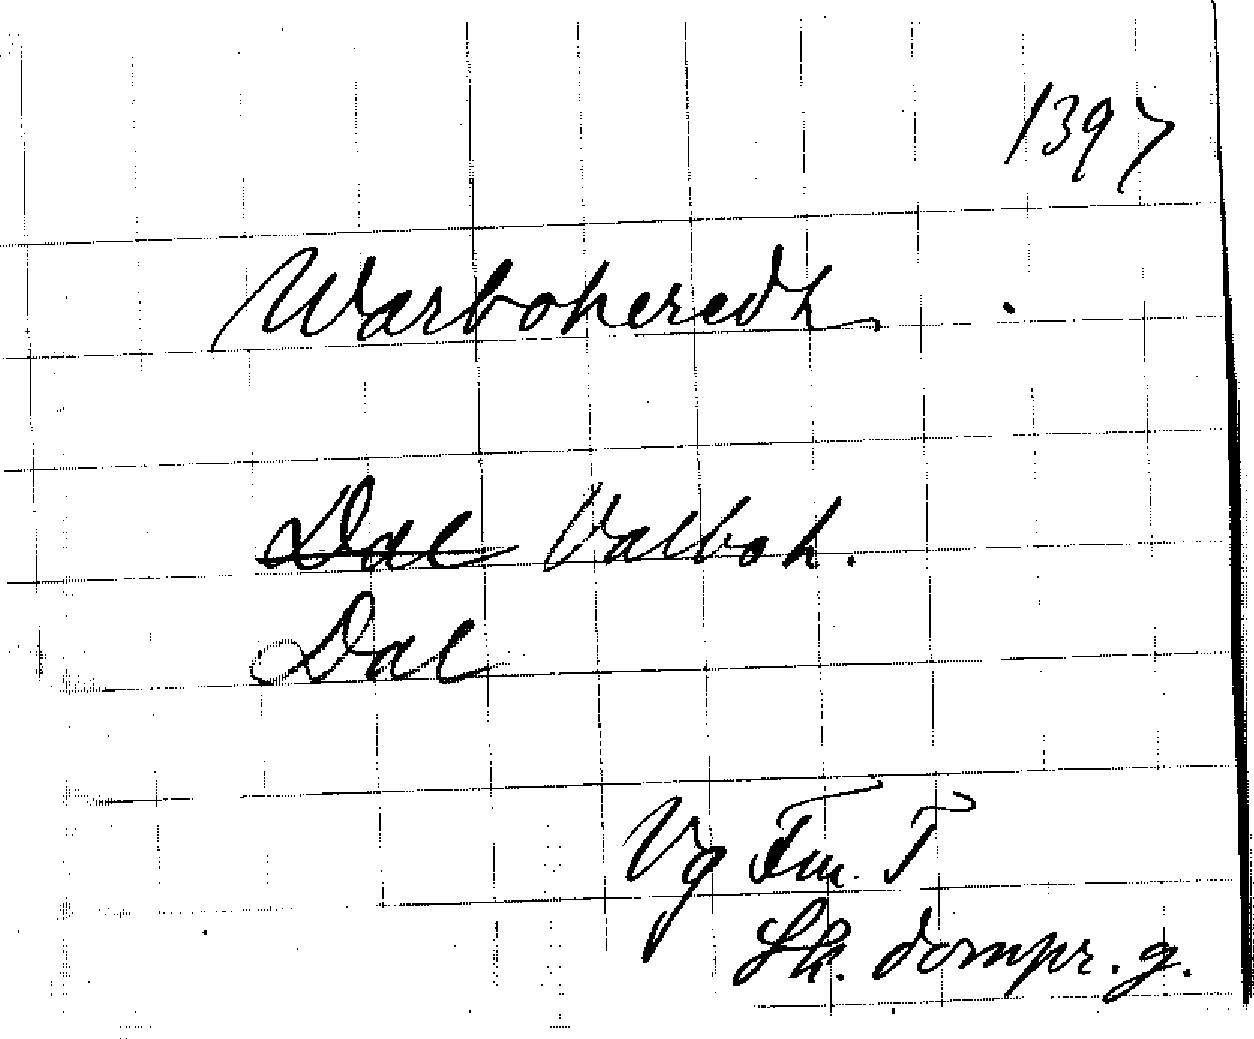 1397
Warboheredh
Dal Valboh.
Dal
Vg Fm. T
Sk. dompr. g.